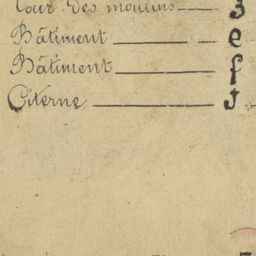 Tour des moulins 3
Bâtiment e
Bâtiment f
Citerne J